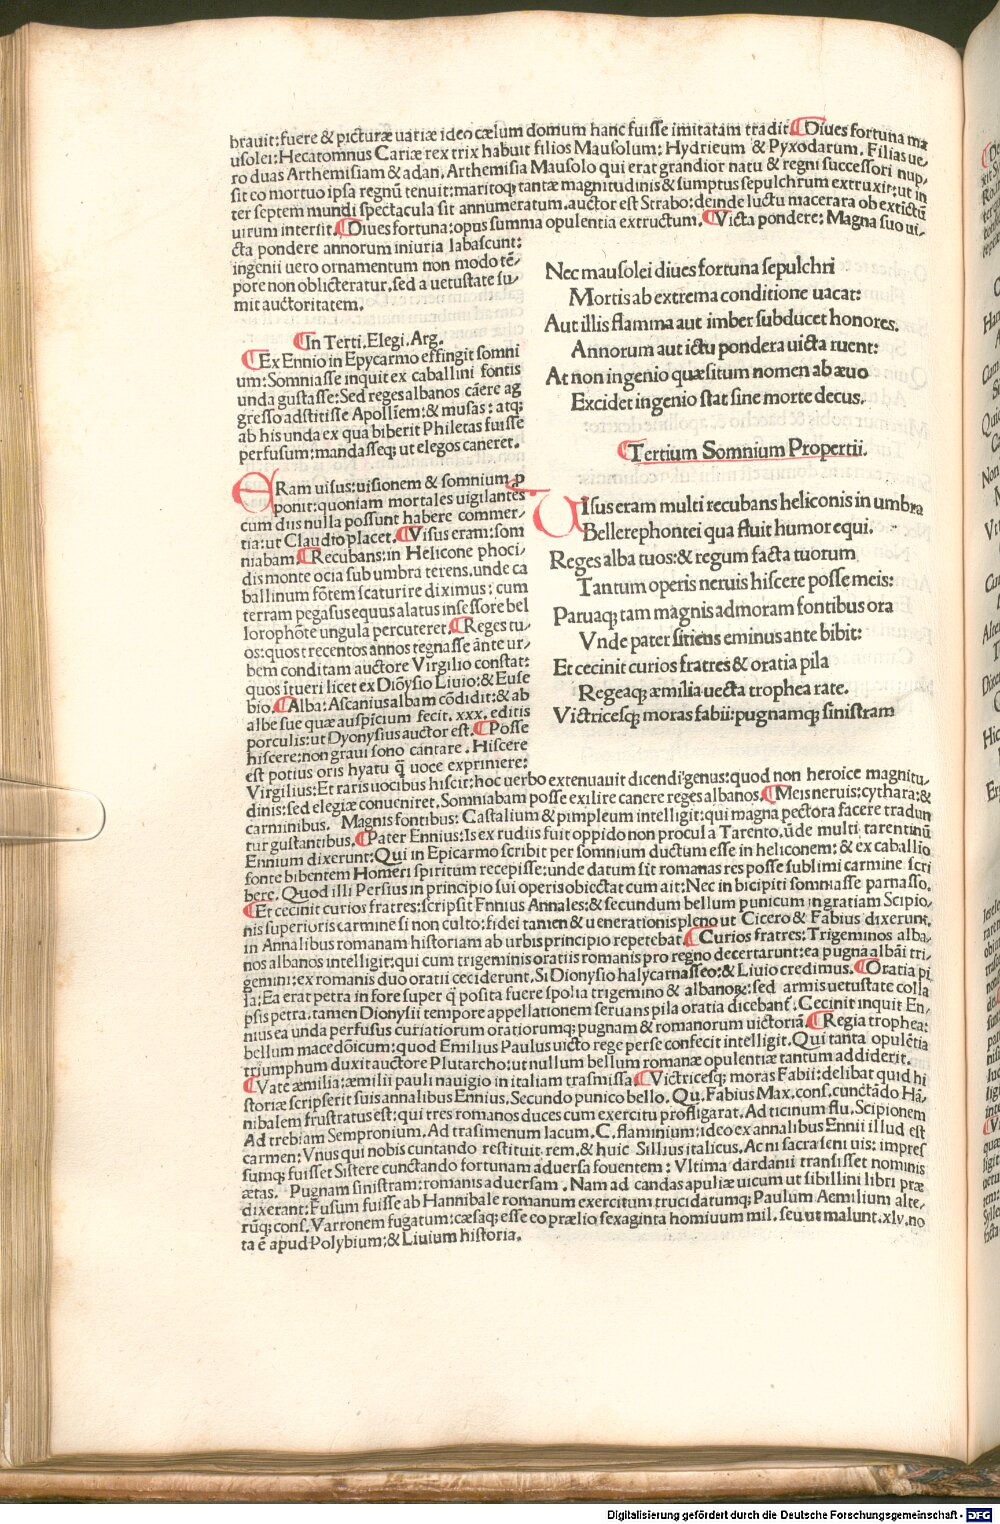 brauit:fuere & picturæ uariæ ideo cælum domum hanc fuisse imitatam tradit. Diues fortuna ma
usolei:Hecatomnus Cariæ rex trix habuit filios Mausolum: Hydrieum & Pyxodarum. Filias ue-
ro duas Arthemisiam & adan. Arthemisia Mausolo qui erat grandior natu & regni successori nup-
sit eo mortuo ipsa regnū tenuit:maritoqȝ tantæ magnitudinis & sumptus sepulchrum extruxit:ut in
ter septem mundi spectacula sit annumeratum.auctor est Strabo:deinde luctu macerara ob extictū
uirum interiit. Diues fortuna:opus summa opulentia extructum. Victa pondere: Magna suo ui-
cta pondere annorum iniuria labascunt:
ingenii uero ornamentum non modo tē-
pore non oblicteratur.sed a uetustate su-
mit auctoritatem.
In Terti. Elegi. Arg.
Ex Ennio in Epycarmo effingit somni
um:Somniasse inquit ex caballini fontis
unda gustasse:Sed reges albanos cāere ag
gresso adstitisse Apolliem:& musas: atqȝ
ab his unda ex qua biberit Philetas fuisse
perfusum:mandasseqȝ ut elegos caneret.
ERam uisus:uisionem & somnium p
ponit:quoniam mortales uigilantes
cum diis nulla possunt habere commer-
tia:ut Claudio placet. Visus eram:som
niabam. Recubans:in Helicone phoci-
dis monte ocia sub umbra terens.unde ca
ballinum fōtem scaturire diximus: cum
terram pegasus equus alatus insessore bel
lorophōte ungula percuteret. Reges tu-
os:quos trecentos annos regnasse ante ur-
bem conditam auctore Virgilio constat:
quos ītueri licet ex Diōysio Liuio:& Euse
bio. Alba: Ascanius albam cōdidit:& ab
albe sue quæ auspicium fecit. xxx. editis
porculis:ut Dyonysius auctor est. Posse
hiscere:non graui sono cantare. Hiscere
est potius oris hyatu q̄ uoce exprimere:
Virgilius:Et raris uocibus hiscit:hoc uerbo extenuauit dicendi genus:quod non heroice magnitu-
dinis:sed elegiæ conueniret. Somniabam posse exilire canere reges albanos. Meis neruis:cythara:&
carminibus. Magnis fontibus: Castalium & pimpleum intelligit:qui magna pectora facere tradun
tur gustantibus. Pater Ennius:Is ex rudiis fuit oppido non procul a Tarento.ūde multi tarentinū
Ennium dixerunt:Qui in Epicarmo scribit per somnium ductum esse in heliconem: & ex caballio
fonte bibentem Homeri spiritum recepisse:unde datum sit romanas res posse sublimi carmine scri
bere. Quod illi Persius in principio sui operis obiectat cum ait:Nec in bicipiti somniasse parnasso.
Et cecinit curios fratres:scripsit Ennius Annales:& secundum bellum punicum in gratiam Scipio-
nis superioris carmine si non culto:fidei tamen & uenerationis pleno ut Cicero & Fabius dixerunt.
in Annalibus romanam historiam ab urbis principio repetebat. Curios fratres: Trigeminos alba-
nos albanos intelligit:qui cum trigeminis oratiis romanis pro regno decertarunt:ea pugna albāi tri-
gemini:ex romanis duo oratii ceciderunt. Si Dionysio halycarnasseo:& Liuio credimus. Oratia pi
la:Ea erat petra in fore super q̄ posita fuere spolia trigemino & albanoꝝ:sed armis uetustate colla
psis petra.tamen Dionysii tempore appellationem seruans pila oratia dicebant. Cecinit inquit En-
nius ea unda perfusus curiatiorum oratiorumqȝ pugnam & romanorum uictoriā. Regia trophea:
bellum macedōicum:quod Emilius Paulus uicto rege perse confecit intelligit. Qui tanta opulētia
triumphum duxit auctore Plutarcho:ut nullum bellum romanæ opulentiæ tantum addiderit.
Vate æmilia:æmilii pauli nauigio in italiam trāsmissa. Victricesqȝ moras Fabii:delibat quid hi
storiæ scripserit suis annalibus Ennius. Secundo punico bello. Qu. Fabius Max.cons.cunctādo Hā-
nibalem frustratus est:qui tres romanos duces cum exercitu profligarat. Ad ticinum flu. Scipionem
Ad trebiam Sempronium. Ad trasimenum lacum. C. flaminium:ideo ex annalibus Ennii illud est
carmen: Vnus qui nobis cuntando restituit rem.& huic Sillius italicus. Ac ni sacra seni uis: impres
sumqȝ fuisset Sistere cunctando fortunam aduersa fouentem: Vltima dardanii transisset nominis
ætas. Pugnam sinistram:romanis aduersam. Nam ad candas apuliæ uicum ut sibillini libri præ
dixerant:Fusum fuisse ab Hannibale romanum exercitum trucidatumqȝ Paulum Aemilium alte-
rūqȝ cons. Varronem fugatum:cæsaqȝ esse eo prælio sexaginta homiuum mil. seu ut malunt.xlv.no
ta ē apud Polybium:& Liuium historia.
Nec mausolei diues fortuna sepulchri
Mortis ab extrema conditione uacat:
Aut illis flamma aut imber subducet honores.
Annorum aut ictu pondera uicta ruent:
At non ingenio quæsitum nomen ab æuo
Excidet ingenio stat sine morte decus.
Tertium Somnium Propertii.
VIsus eram multi recubans heliconis in umbra
Bellerephontei qua fluit humor equi.
Reges alba tuos:& regum facta tuorum
Tantum operis neruis hiscere posse meis:
Paruaqȝ tam magnis admoram fontibus ora
Vnde pater sitiens eminus ante bibit:
Et cecinit curios fratres & oratia pila
Regeaqȝ æmilia uecta trophea rate.
Victricesqȝ moras fabii:pugnamqȝ sinistram
Digitalisierung gefördert durch die Deutsche Forschungsgemeinschaft - DFG